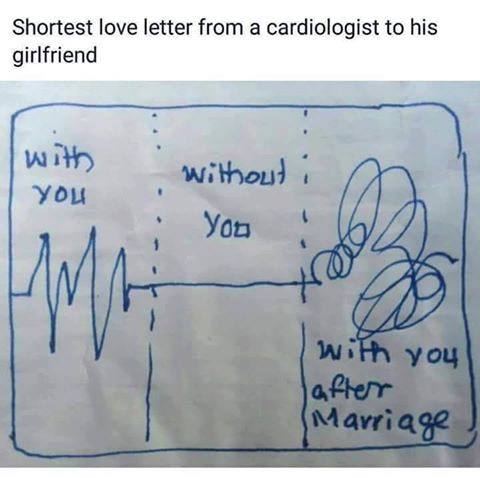 Shortest love letter from a cardiologist to his
girlfriend
with
you
without
you
with you
after
Marriage